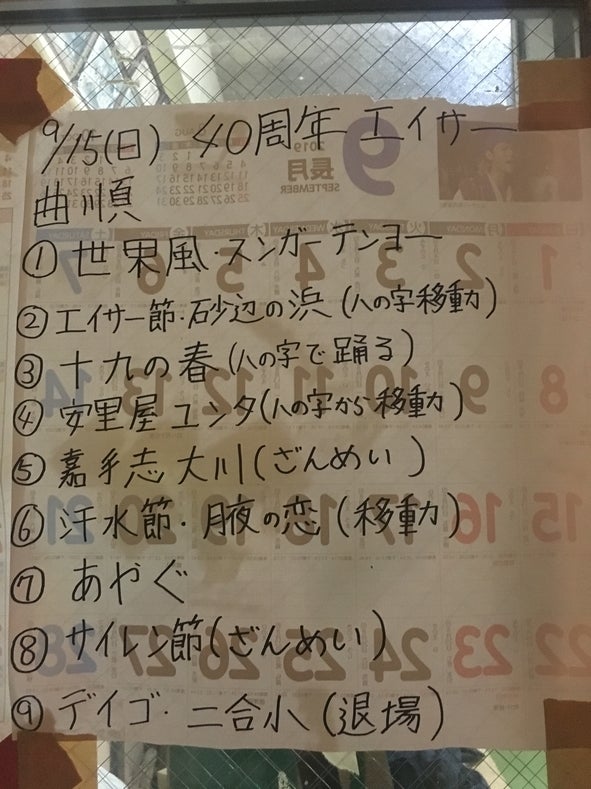 9/15(日) 40周年 エイサー
曲順
① 世果風・スンガーテンヨー
② エイサー節・砂辺の浜 (ハの字移動)
③ 十九の春 (ハの字で踊る)
④ 安里屋ユンタ (ハの字から移動)
⑤ 嘉手志大川 (ざんめい)
⑥ 汗水節・月夜の恋 (移動)
⑦ あやぐ
⑧ サイレン節 (ざんめい)
⑨ デイゴ・二合小 (退場)
2019
9
長月
SEPTEMBER